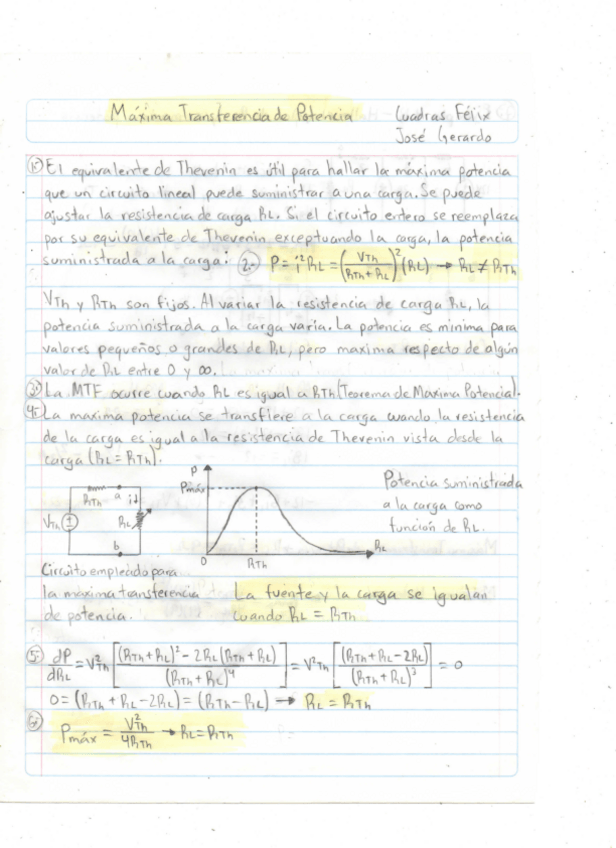 Máxima Transferencia de Potencia Cuadras Félix
José Gerardo
1.- El equivalente de Thevenin es útil para hallar la máxima potencia
que un circuito lineal puede suministrar a una carga. Se puede
ajustar la resistencia de carga RL. Si el circuito entero se reemplaza
por su equivalente de Thevenin exceptuando la carga, la potencia
suministrada a la carga: 2.- P = i²RL = (VTh / (RTh + RL))² (RL) → RL ≠ RTh
VTh y RTh son fijos. Al variar la resistencia de carga RL, la
potencia suministrada a la carga varia. La potencia es minima para
valores pequeños o grandes de RL, pero maxima respecto de algún
valor de RL entre 0 y ∞.
3.- La MTF ocurre cuando RL es igual a RTh (Teorema de Maxima Potencia).
4.- La maxima potencia se transfiere a la carga cuando la resistencia
de la carga es igual a la resistencia de Thevenin vista desde la
carga (RL = RTh).
RTh a i↓
VTh RL
b
P
Pmáx
0 RTh RL
Potencia suministrada
a la carga como
función de RL.
Circuito empleado para
la máxima transferencia
de potencia.
La fuente y la carga se igualan
cuando RL = RTh
5.- dP/dRL = V²Th [((RTh + RL)² - 2RL(RTh + RL)) / (RTh + RL)⁴] = V²Th [(RTh + RL - 2RL) / (RTh + RL)³] = 0
0 = (RTh + RL - 2RL) = (RTh - RL) → RL = RTh
6.- Pmáx = V²Th / 4RTh → RL = RTh